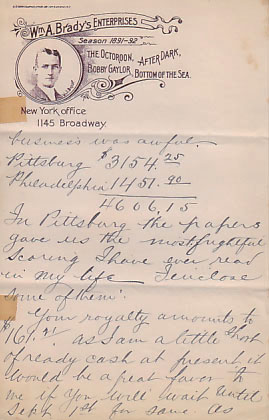 Wm A. Brady's Enterprises
Season 1891-92
THE OCTOROON, AFTER DARK,
BOBBY GAYLOR, BOTTOM OF THE SEA.
New York office
1145 Broadway.
business was awful.
Pittsburg $3154.25
Philadelphia 1451.90
4606.15
In Pittsburg the papers
gave us the most frightful
scoring I have ever read
in my life I enclose
some of them.
Your royalty amounts to
as I am a little short
of ready cash at present it
would be a great favor to
me if you will wait until
Sept 1st for same. As